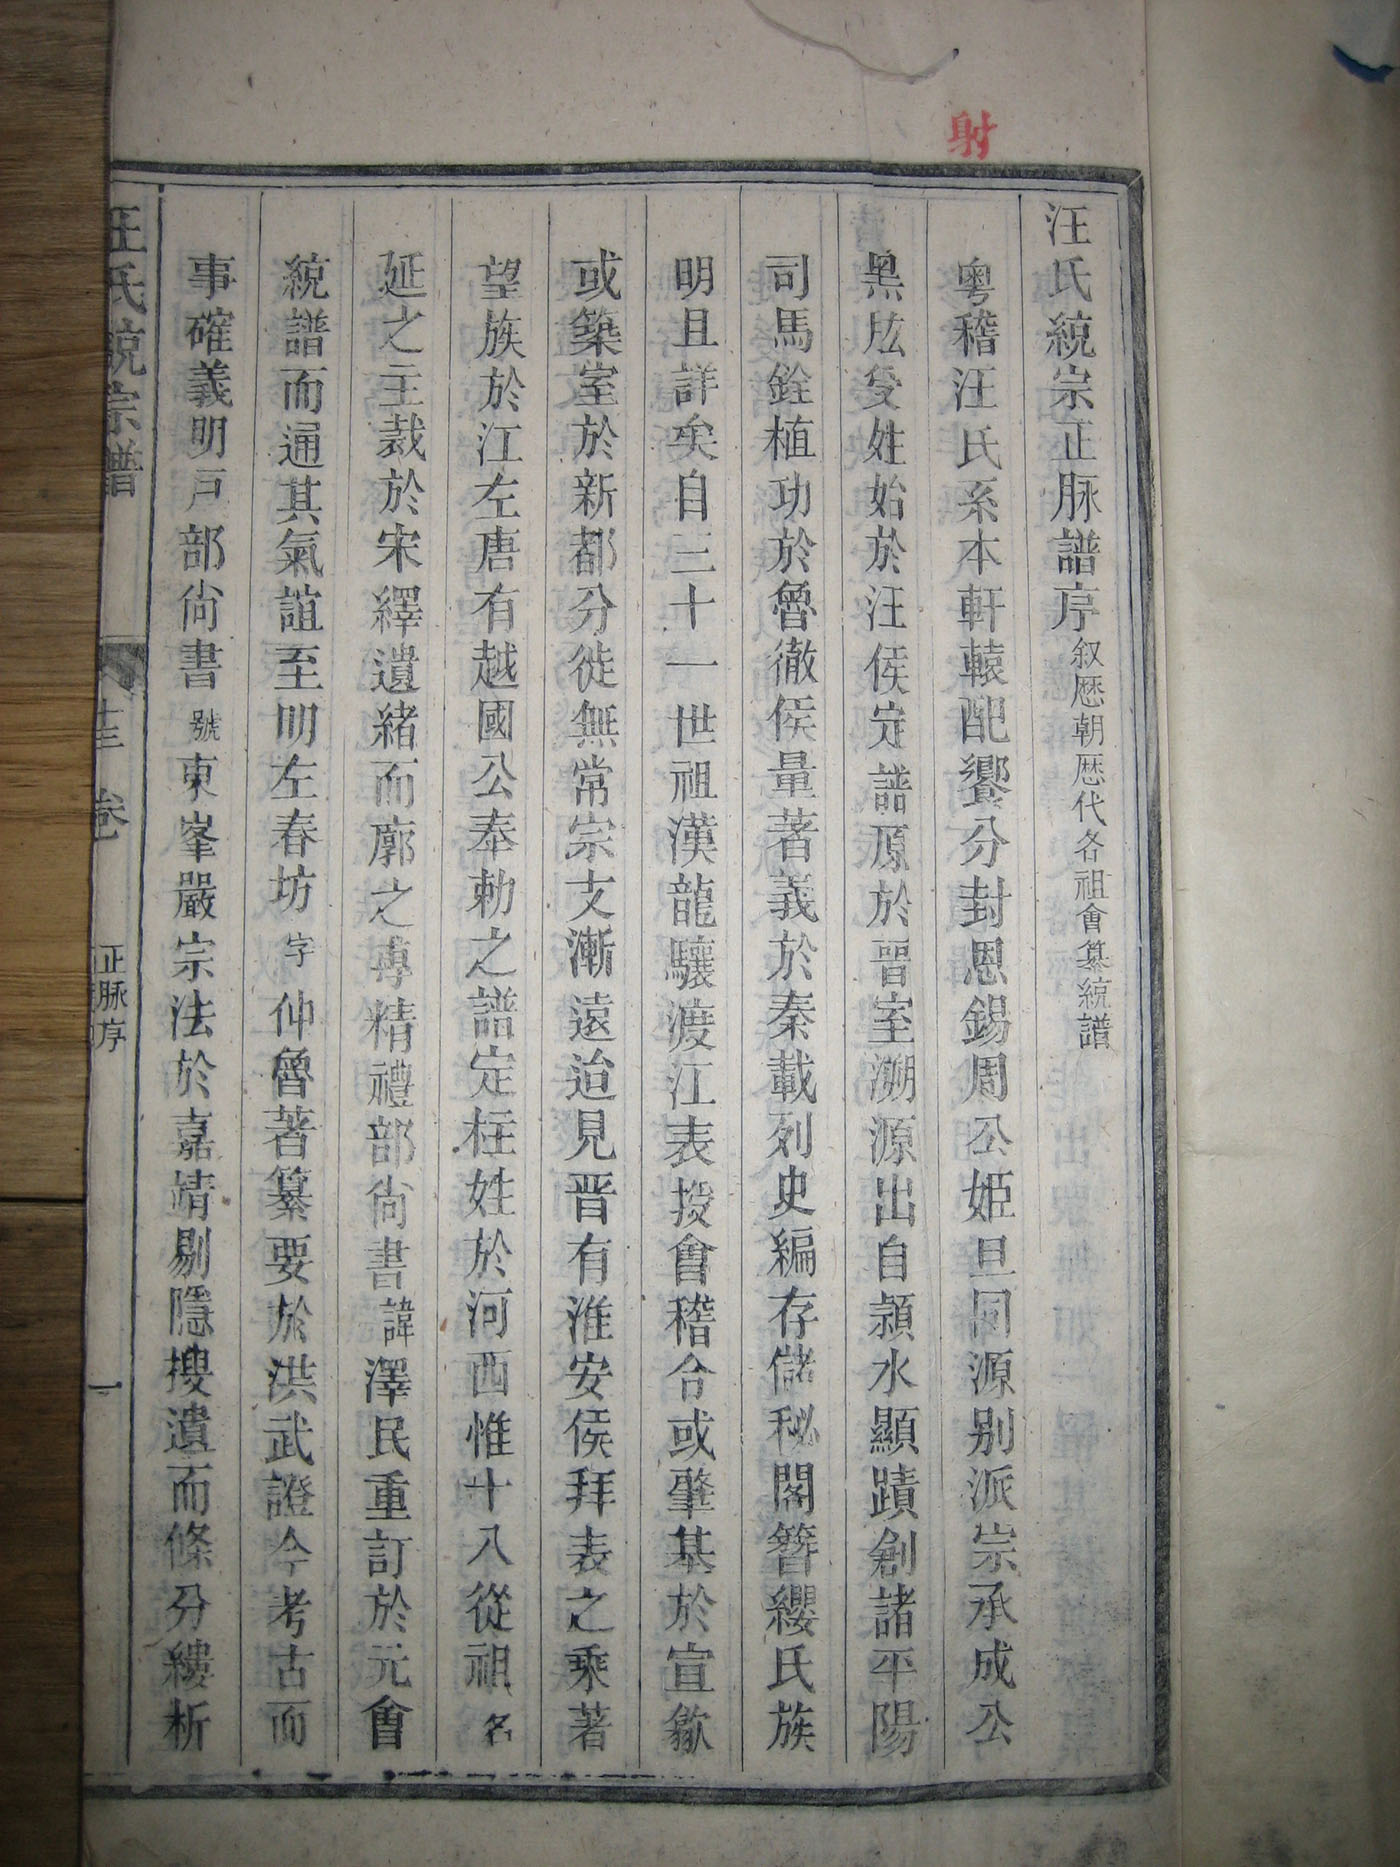 射
汪氏統宗正脉譜序叙歷朝歷代各祖會纂統譜
粵稽汪氏系本軒轅配饗分封恩錫周公姬旦同源别派宗承成公
黑肱受姓始於汪侯定譜原於晉室溯源出自頴水顯蹟創諸平陽
司馬銓植功於魯徹侯量著義於秦載列史編存儲秘閣簪纓氏族
明且詳矣自三十一世祖漢龍驤渡江表授會稽合或肇基於宣歙
或築室於新都分徙無常宗支漸遠迨見晋有淮安侯拜表之乘著
望族於江左唐有越國公奉勅之譜定柱姓於河西惟十八從祖名
延之主裁於宋繹遺緒而廓之專精禮部尙書諱澤民重訂於元會
統譜而通其氣誼至明左春坊字仲魯著纂要於洪武證今考古而
事確義明戸部尙書號東峯嚴宗法於嘉靖剔隱搜遺而條分縷析
汪氏統宗譜
卷
正脉序
一